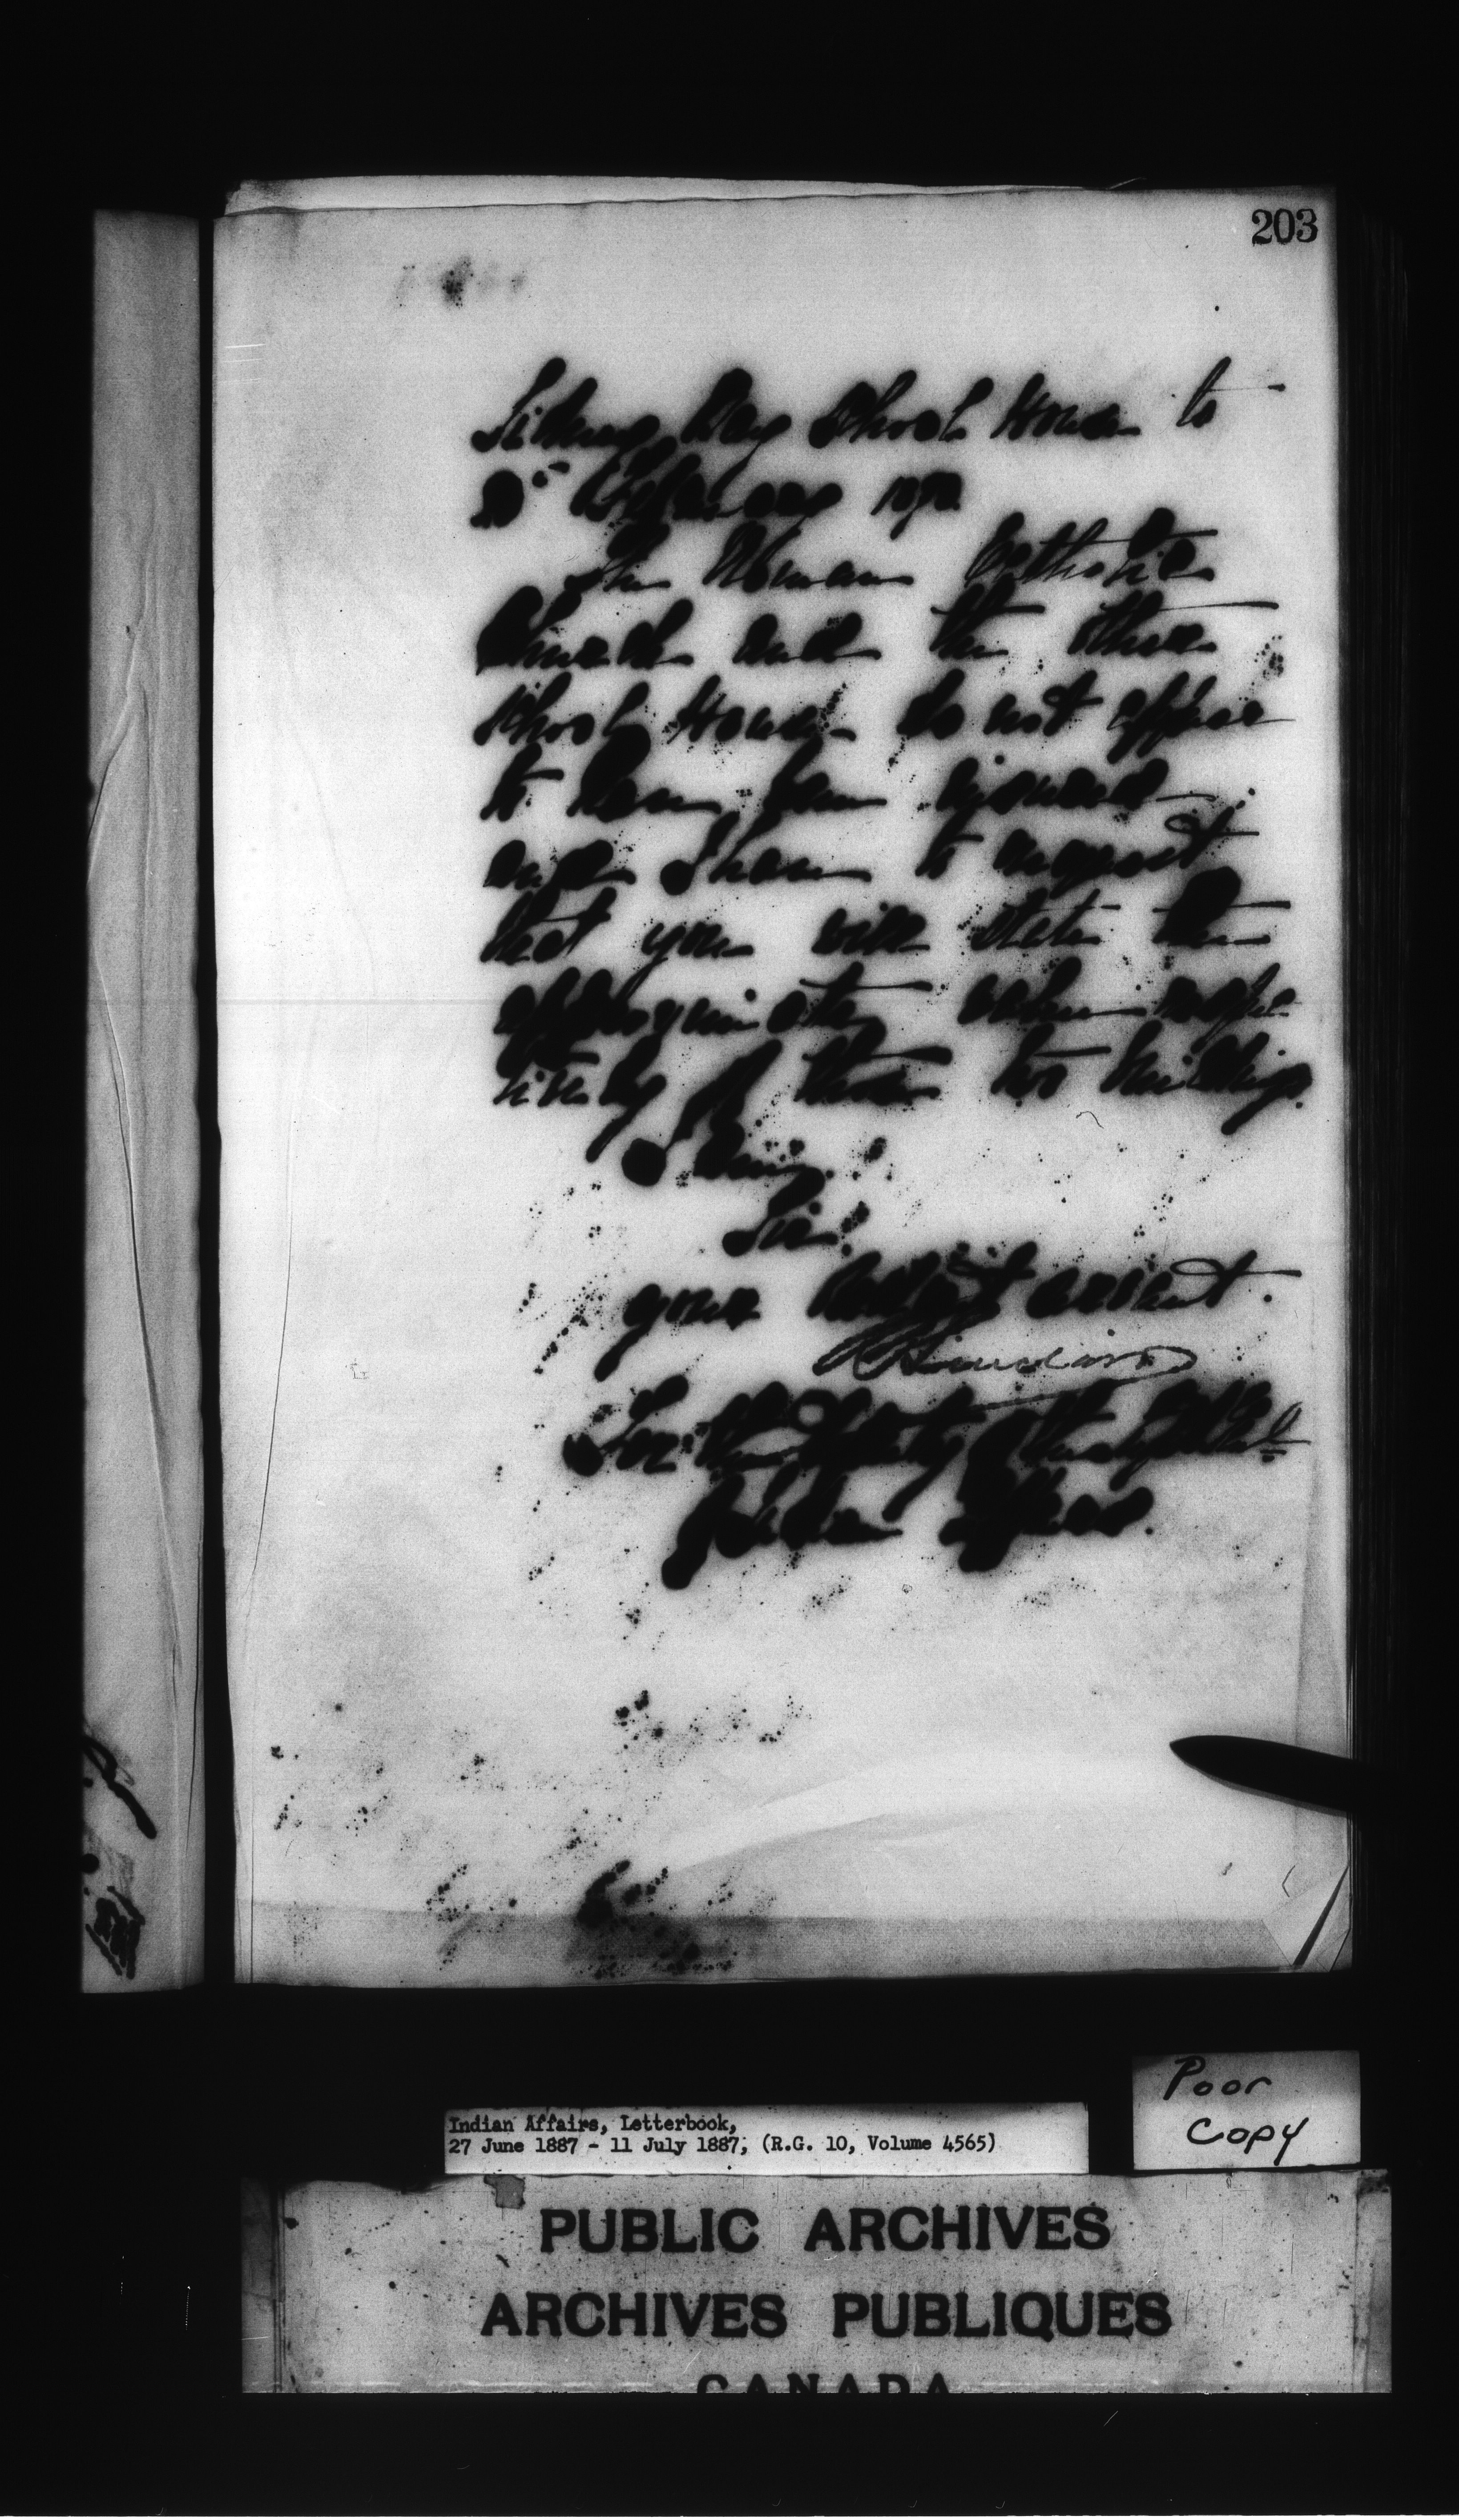 203
Bay School House to
The Roman Catholic
Church and the other
School House do not appear
to have been insured
and I have to request
that you will state the
approximate value respec
tively of these two buildings.
I am,
Sir,
your obedient servant.
For the Deputy of the Supt. Genl
Indian Affairs.
Poor
Copy
Indian Affairs, Letterbook,
27 June 1887 - 11 July 1887, (R.G. 10, Volume 4565)
PUBLIC ARCHIVES
ARCHIVES PUBLIQUES
CANADA